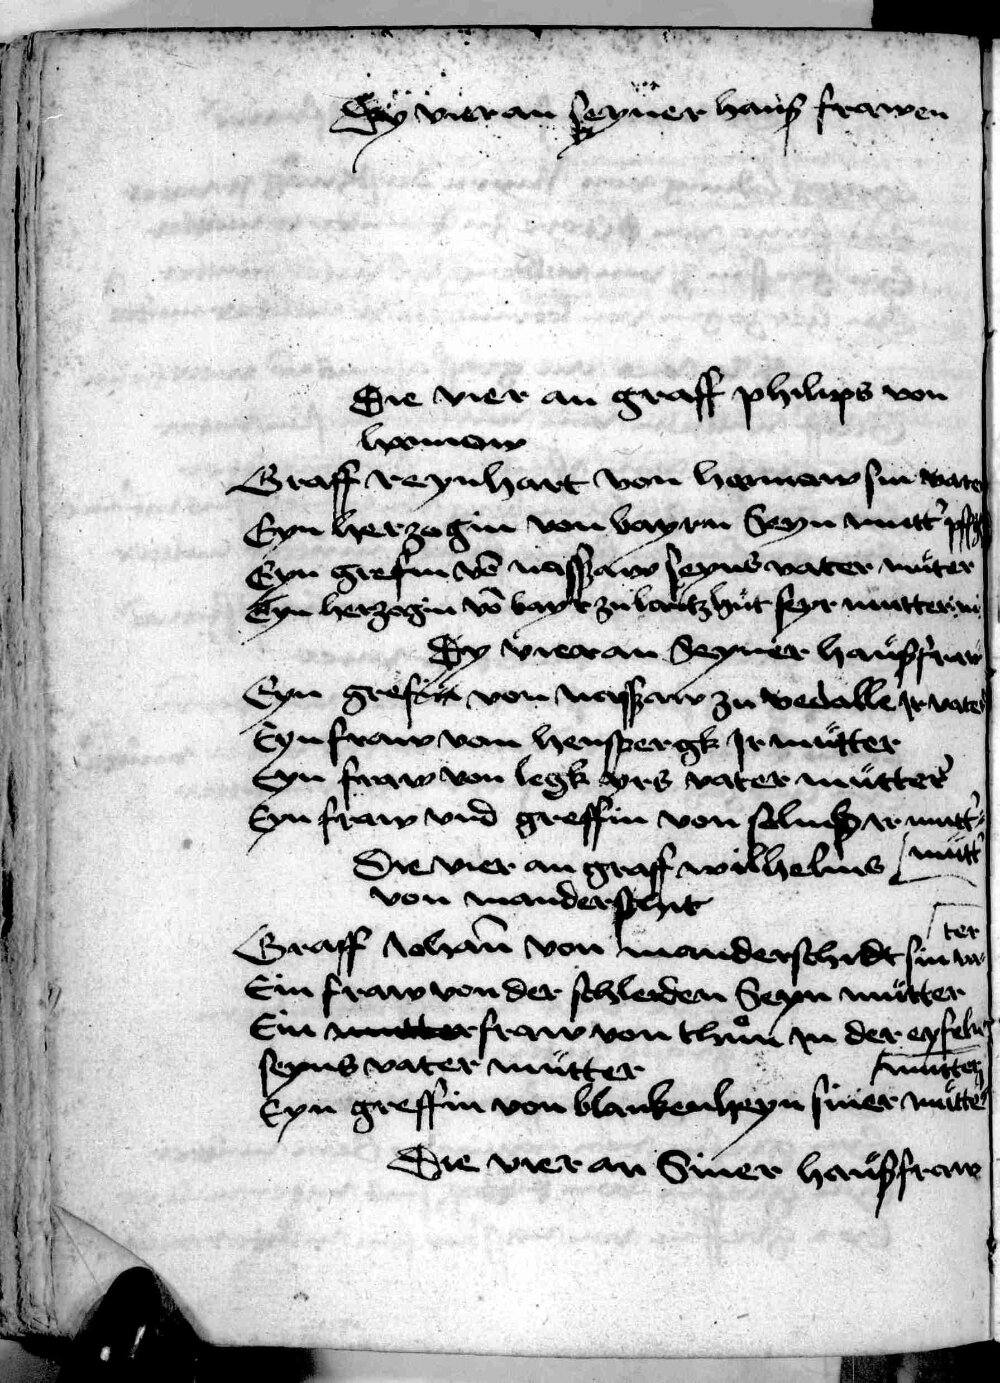 Dy vier an seyner hauß frawen
Die vier an graff philips von
hannaw
Graff reynhart von hannaw sin vater
Eyn herzogin von bayrn Seyn mutt'
Eyn grefin vō nassaw seyns vater müter
Eyn herzogin vō bayr zu lantzhut seyr mutter
Dy vier an Seyner haußfraw
Eyn grefin von nassaw zu Jr vater
Eyn fraw von henspergk Jr mütter
Eyn fraw von legk yrs vater mütter
Eyn fraw vnd greffin von Jr mutt'
mütt'
Die vier an graff wilhelms
von manderschit
ter
Graff Johan von manderschidt sin va
Ein fraw von der schleiden Seyn mütter
Ein fraw von thun in der eyfeln
seyns vater mütter
mutter
Eyn greffin von blankenheyn siner mütter
Die vier an Siner haußfraw